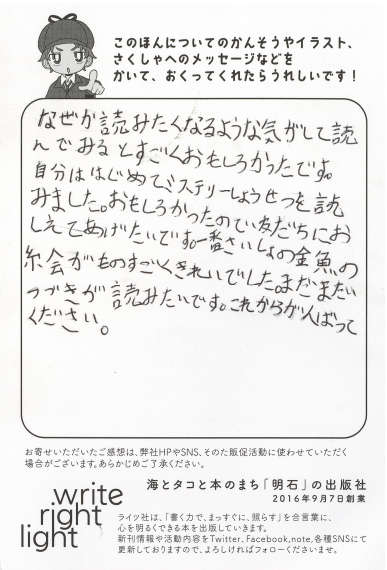 このほんについてのかんそうやイラスト、
さくしゃへのメッセージなどを
かいて、おくってくれたらうれしいです！
なぜか読みたくなるような気がして読
んでみるとすごくおもしろかったです。
自分ははじめてミステリーしょうせつを読
みました。おもしろかったので友だちにお
しえてあげたいです。一番さいしょの金魚の
絵がものすごくきれいでした。まだまだ
つづきが読みたいです。これからがんばって
ください。
お寄せいただいたご感想は、弊社HPやSNS、そのた販促活動に使わせていただく
場合がございます。あらかじめご了承ください。
海とタコと本のまち「明石」の出版社
2016年9月7日創業
write
right
light
ライツ社は、「書く力で、まっすぐに、照らす」を合言葉に、
心を明るくできる本を出版していきます。
新刊情報や活動内容をTwitter、Facebook,note,各種SNSにて
更新しておりますので、よろしければフォローくださいませ。